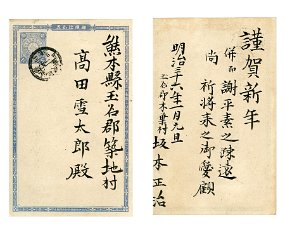 熊本縣玉名郡築地村
高田雪太郎殿
謹賀新年
併而謝平素之疎遠
尚祈將来之御愛顧
明治三十六年一月元旦
坂本正治